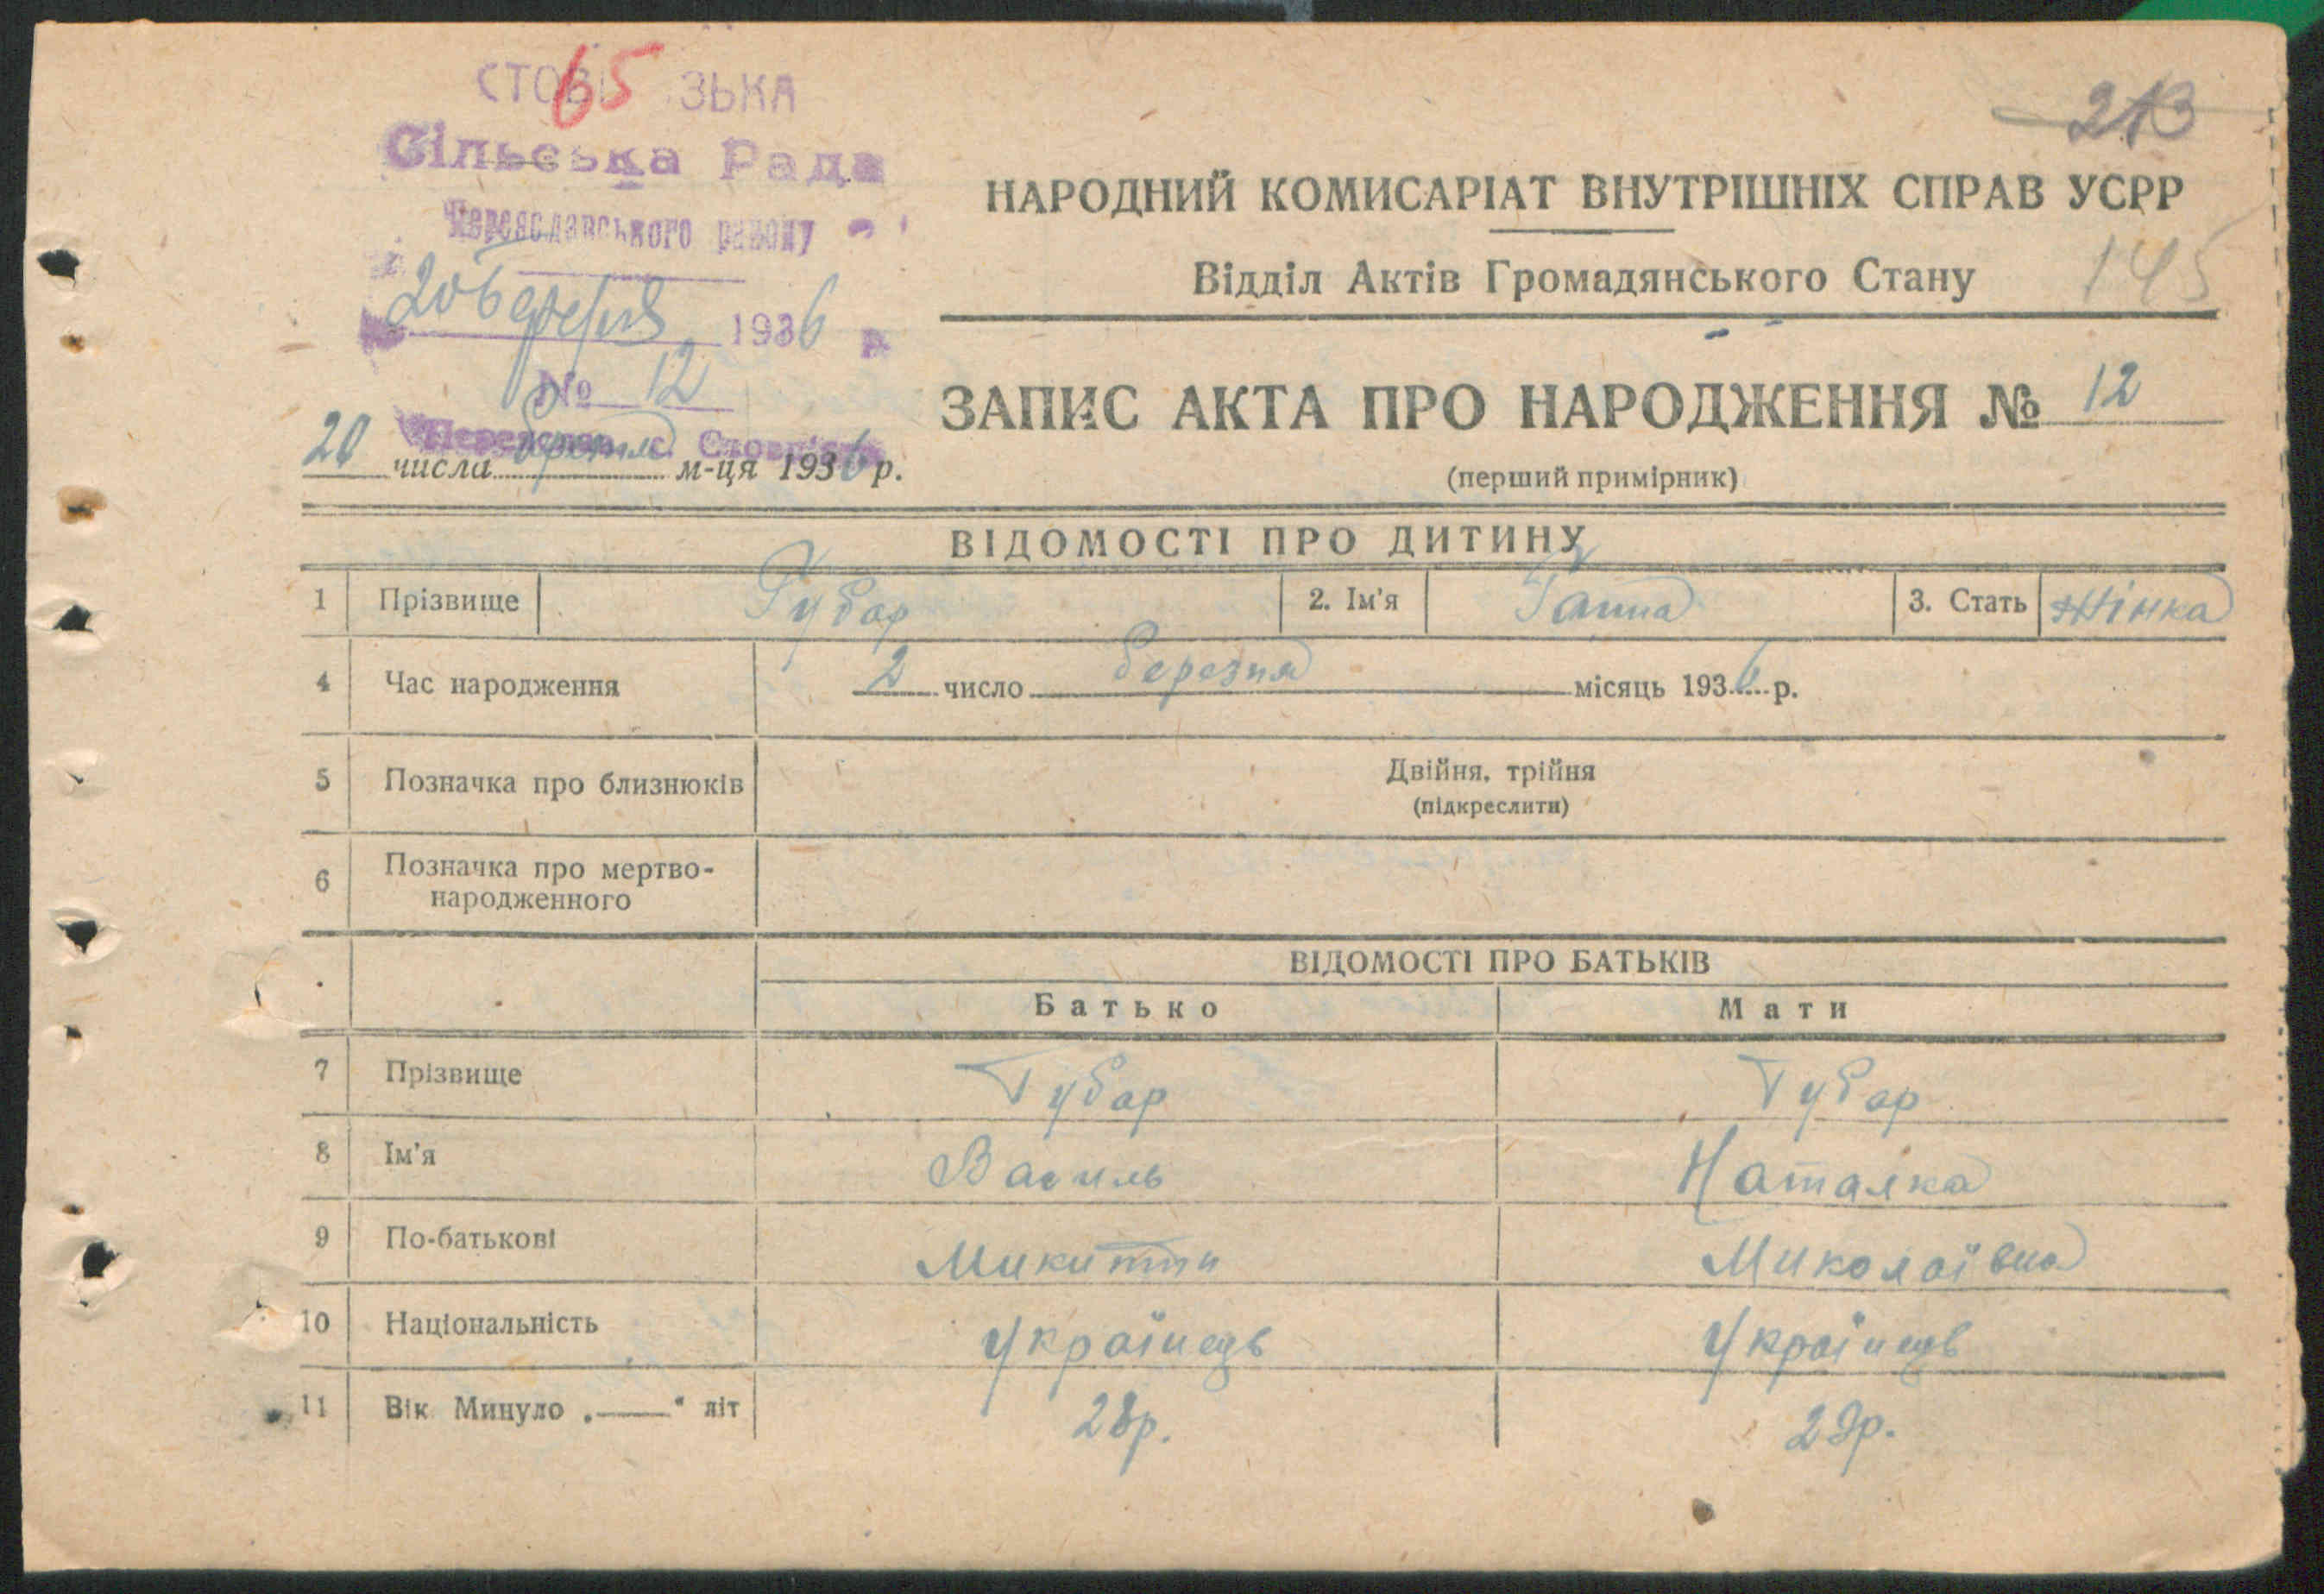 65
Сільська Рада
Переяславського району
20 березня 1936 р.
№ 12
20 числа березня м-ця 1936 р.
213
НАРОДНИЙ КОМИСАРІАТ ВНУТРІШНІХ СПРАВ УСРР
Відділ Актів Громадянського Стану 145
ЗАПИС АКТА ПРО НАРОДЖЕННЯ № 12
(перший примірник)
ВІДОМОСТІ ПРО ДИТИНУ
1 Прізвище Губар 2. Ім'я Ганна 3. Стать жінка
4 Час народження 2 число березня місяць 1936 р.
5 Позначка про близнюків Двійня, трійня
(підкреслити)
6 Позначка про мертво-
народженного
ВІДОМОСТІ ПРО БАТЬКІВ
Батько Мати
7 Прізвище Губар Губар
8 Ім'я Василь Наталка
9 По-батькові Микитти Миколаївна
10 Національність Українець Українець
11 Вік Минуло „——“ літ 28р. 29р.